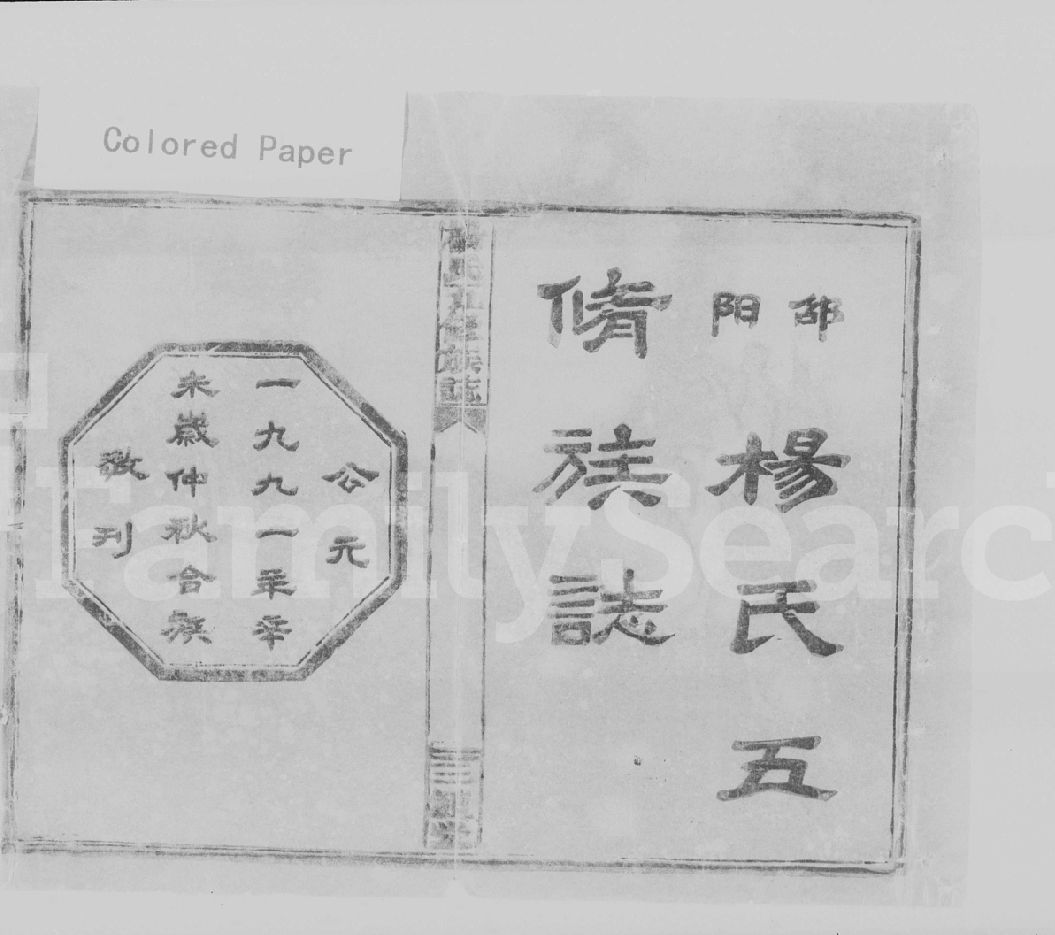 Colored Paper
邵阳
楊氏五
脩族誌
楊氏五修族誌
公元
一九九一年辛
未歲仲秋合族
敬刊
FamilySearc